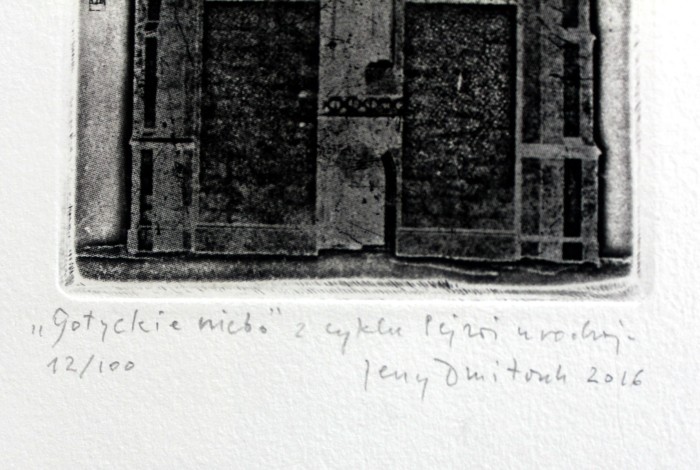 „Gotyckie niebo" z cyklu Pejzaż urodzaj-
12/100
Jerzy Dmitruk 2016